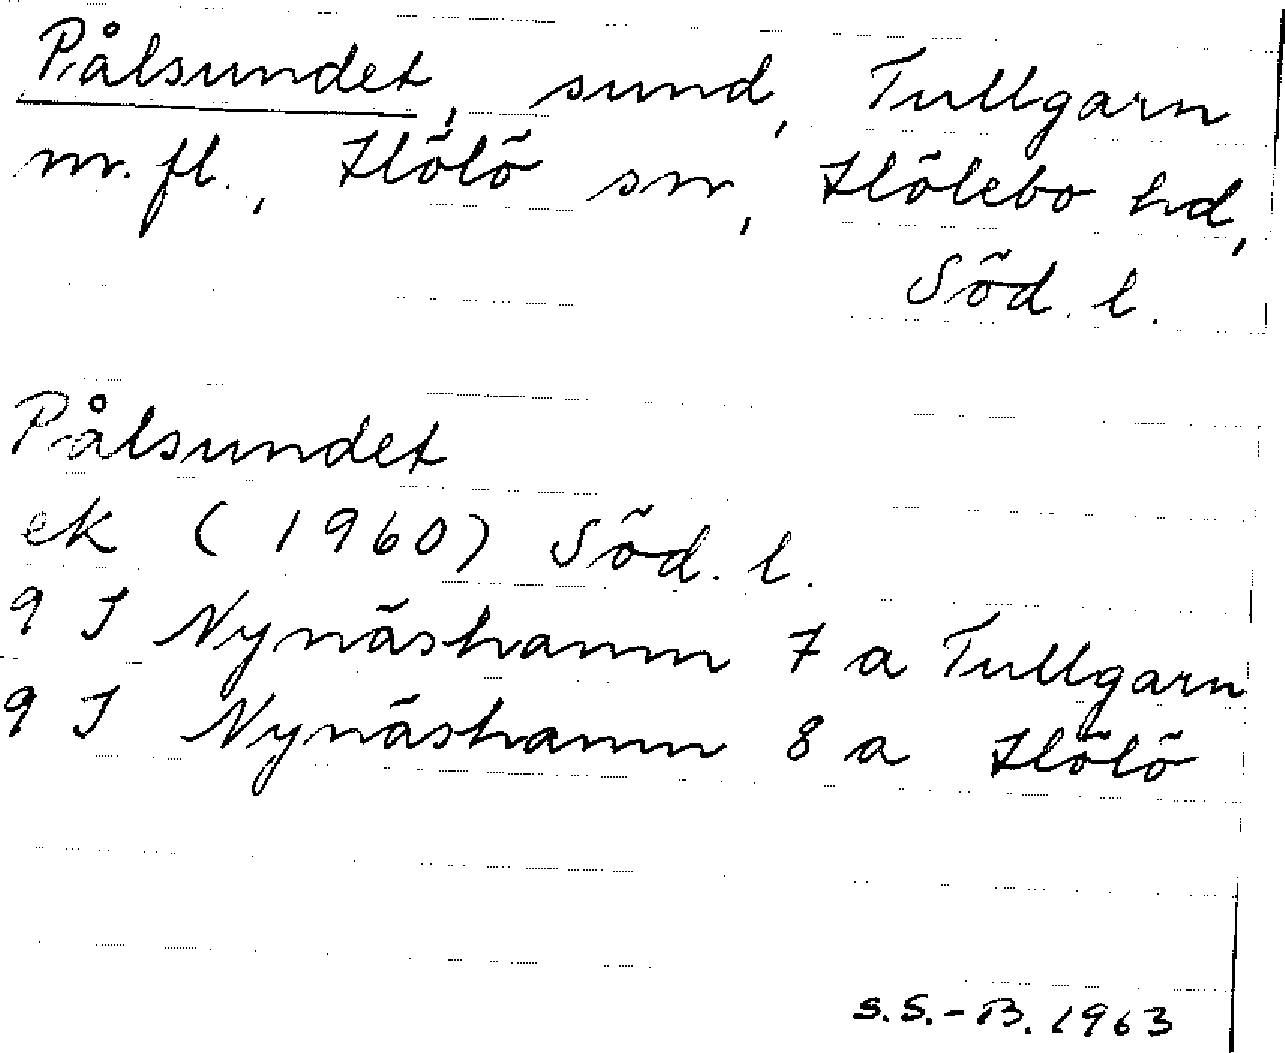 Pålsundet, sund, Tullgarn
m. fl., Hölö sn, Hölebo hd,
Söd. l.
Pålsundet
ek (1960) Söd. l.
9 I Nynäshamn 7 a Tullgarn
9 I Nynäshamn 8 a Hölö
S.S.-B. 1963